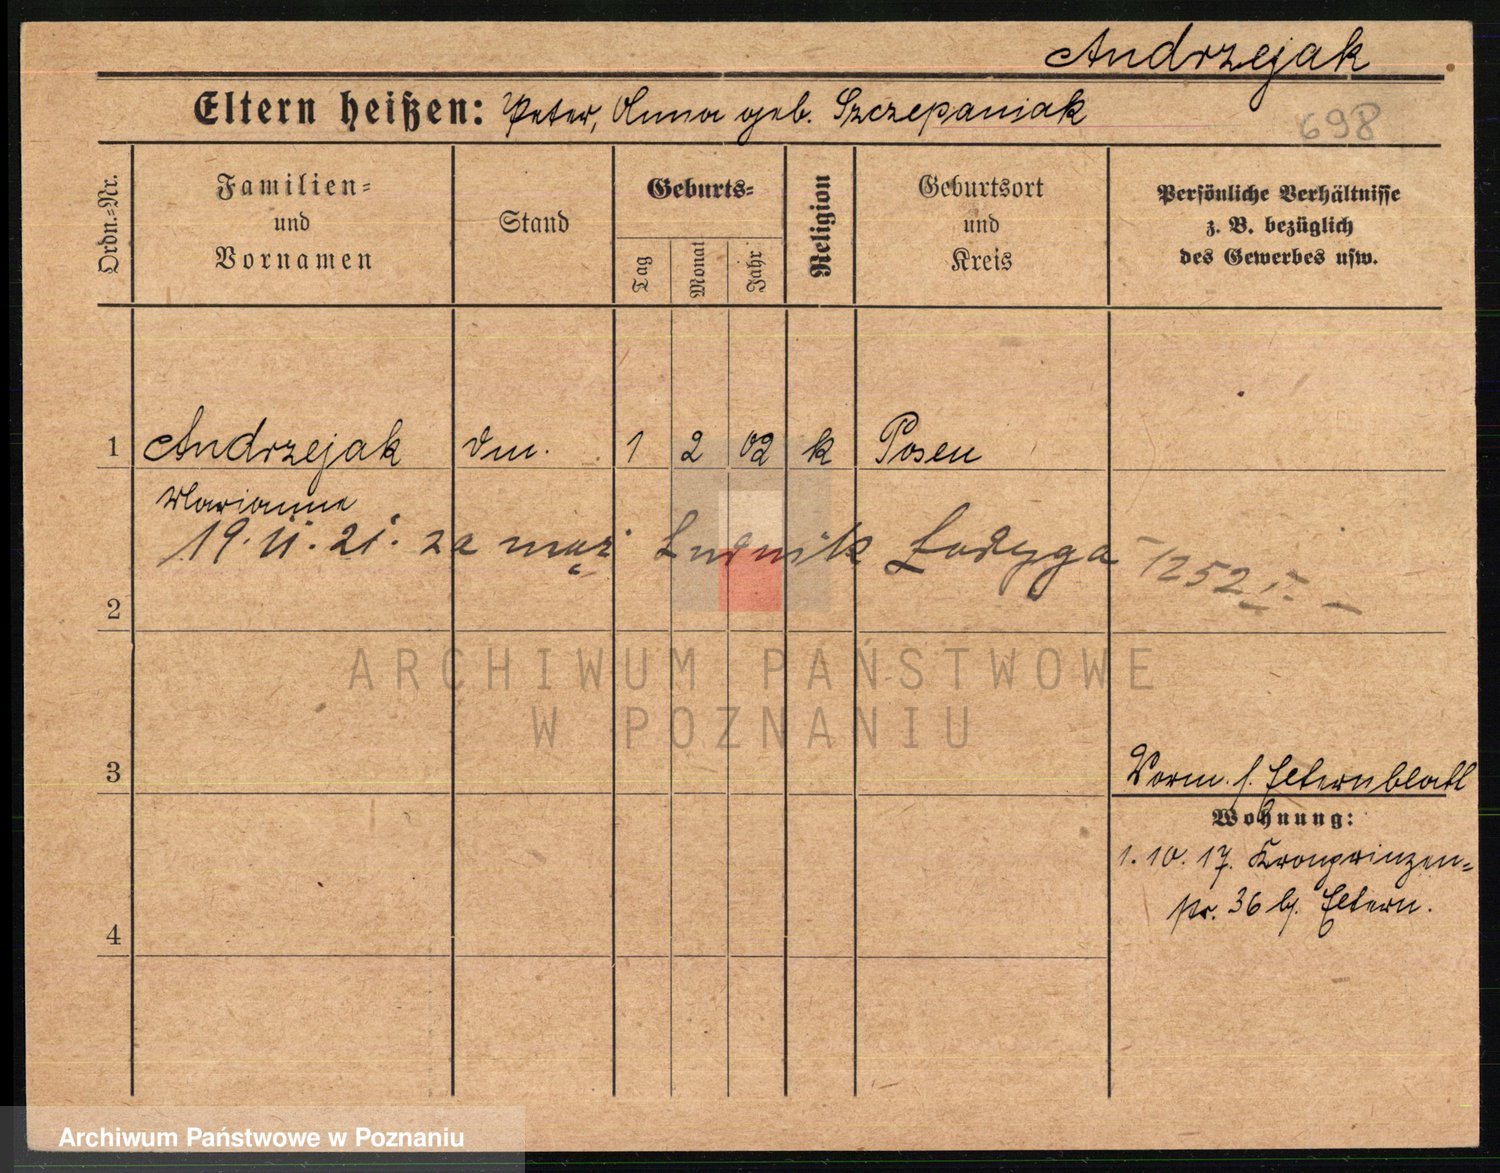 Andrzejak
Eltern heißen: Peter, Anna geb. Szczepaniak
698
Ordn.-Nr.
Familien-
und
Vornamen
Stand
Geburts-
Tag
Monat
Jahr
Religion
Geburtsort
und
Kreis
Persönliche Verhältnisse
z. B. bezüglich
des Gewerbes usw.
1 Andrzejak 1 2 02 k Posen
Marianne
19. II. 21. za mąż Ludwik Ładyga - 1252
2
ARCHIWUM PAŃSTWOWE
W POZNANIU
3
Vorm. s. Elternblatt
Wohnung:
1. 10. 17. Kronprinzen-
str. 36 b. Eltern.
4
Archiwum Państwowe w Poznaniu